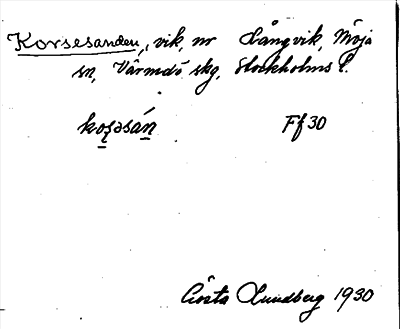 Korsesanden, vik, nr Långvik, Möja
sn, Värmdö skg, Stockholms l.
Ff 30
Gösta Lundberg 1930